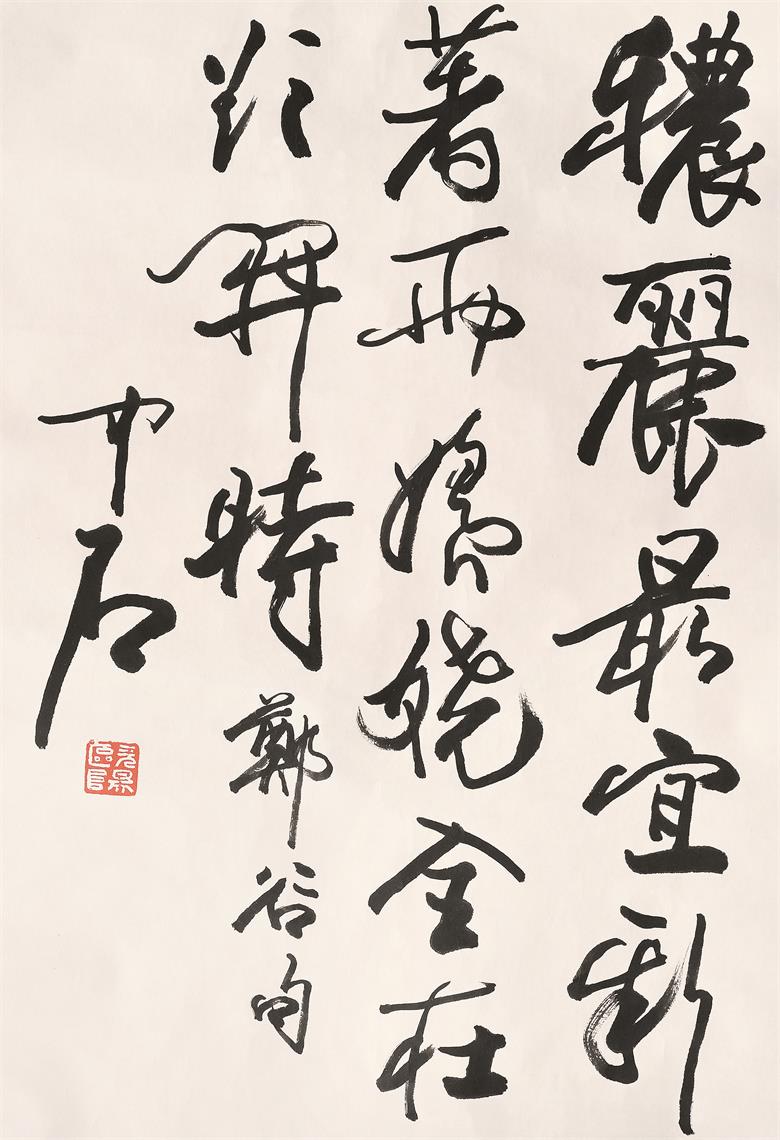 穠麗最宜新
著雨嬌嬈全在
欲開時 鄭谷句
中石